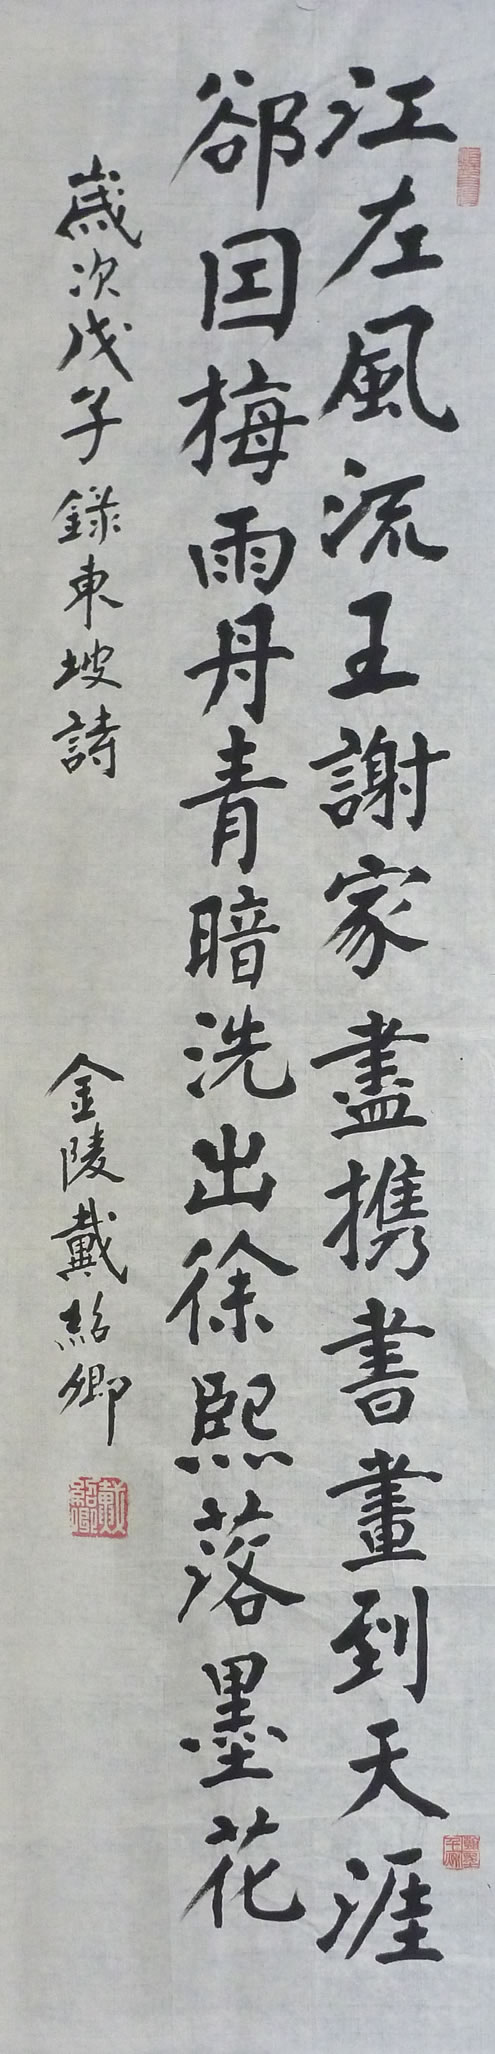 江左風流王謝家盡携書畫到天涯
卻因梅雨丹青暗洗出徐熙落墨花
歲次戊子錄東坡詩
金陵戴紹卿
戴紹卿